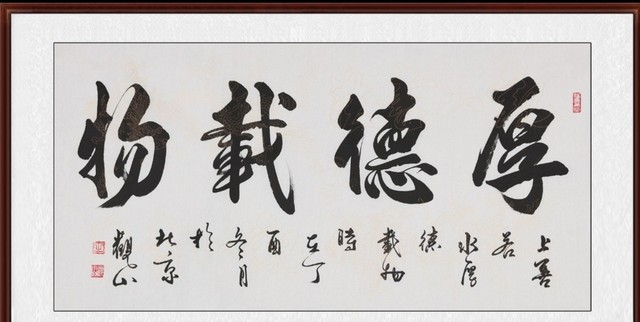 厚德載物
上善若水厚德載物時在丁酉冬月於北京觀山